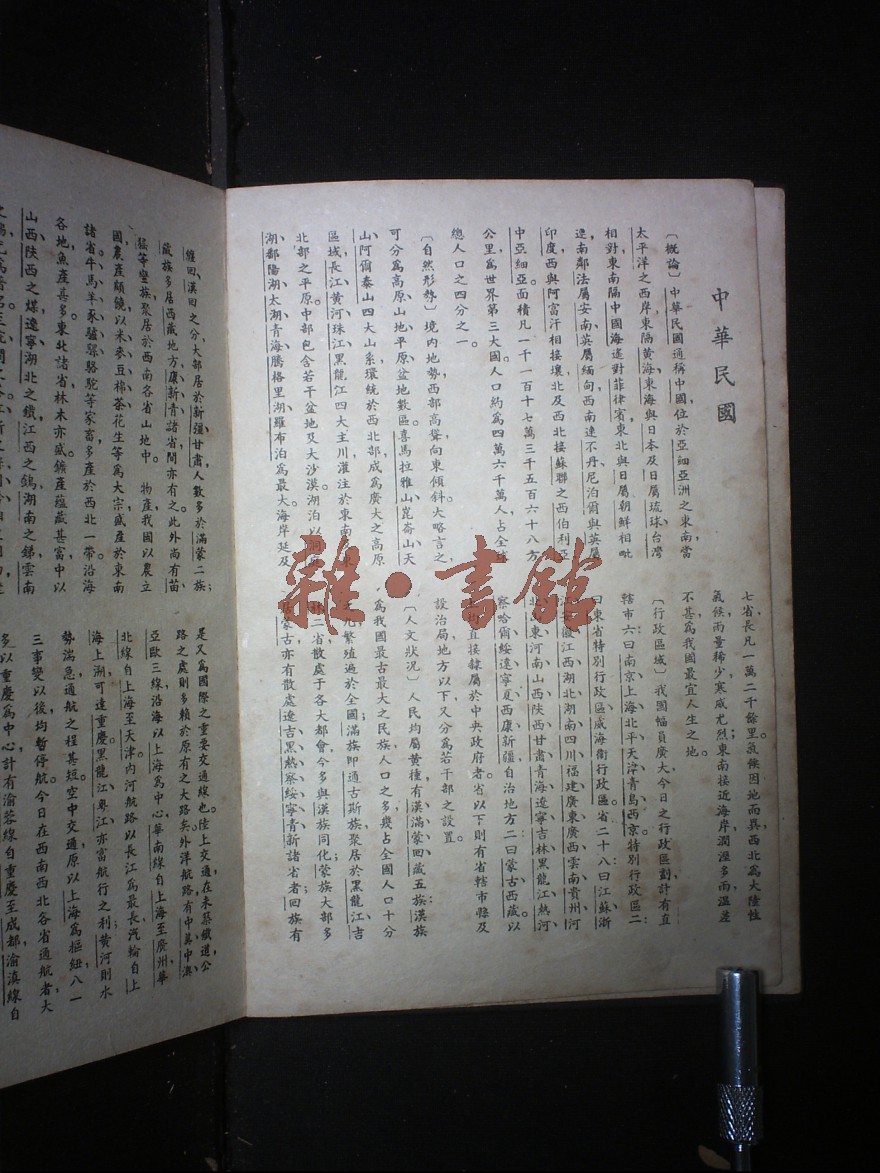 中華民國
〔概論〕中華民國通稱中國，位於亞細亞洲之東南，當
太平洋之西岸，東隔黃海、東海與日本及日屬琉球、台灣
相對，東南隔中國海遙對菲律賓，東北與日屬朝鮮相毗
連，南鄰法屬安南、英屬緬甸，西南連不丹、尼泊爾與英屬
印度，西與阿富汗相接壤，北及西北接蘇聯之西伯利亞、
中亞細亞。面積凡一千一百十七萬三千五百六十八方
公里，為世界第三大國，人口約為四萬六千萬人，占全球
總人口之四分之一。
〔自然形勢〕境内地勢，西部高聳，向東傾斜，大略言之，
可分為高原、山地、平原、盆地數區，喜馬拉雅山、崑崙山、天
山、阿爾泰山四大山系環繞於西北部，成為廣大之高原
區域，長江、黃河、珠江、黑龍江四大主川灌注於東南、東
北部之平原，中部包含若干盆地及大沙漠，湖泊以洞庭
湖、鄱陽湖、太湖、青海、騰格里湖、羅布泊為最大，海岸延及
七省，長凡一萬二千餘里。氣候因地而異，西北為大陸性
氣候，雨量稀少，寒威尤烈；東南接近海岸，潤溼多雨，溫差
不甚，為我國最宜人生之地。
〔行政區域〕我國幅員廣大，今日之行政區劃，計有直
轄市六：曰南京、上海、北平、天津、青島、西京。特別行政區二：
曰東省特別行政區、威海衛行政區。省二十八：曰江蘇、浙
江、安徽、江西、湖北、湖南、四川、福建、廣東、廣西、雲南、貴州、河
北、山東、河南、山西、陝西、甘肅、青海、遼寧、吉林、黑龍江、熱河、
察哈爾、綏遠、寧夏、西康、新疆。自治地方二：曰蒙古、西藏。以
上均直接隸屬於中央政府者。省以下則有省轄市、縣及
設治局，地方以下又分為若干部之設置。
〔人文狀況〕人民均屬黃種，有漢、滿、蒙、回、藏五族，漢族
為我國最古最大之民族，人口之多，幾占全國人口十分
之九，繁殖遍於全國；滿族即通古斯族，聚居於黑龍江、吉
林二省，散處于各大都會，今多與漢族同化；蒙族大部多
居蒙古，亦有散處遼、吉、黑、熱、察、綏、寧、青、新諸省者；回族有
纏回、漢回之分，大部居於新疆、甘肅，人數多於滿、蒙二族；
藏族多居西藏地方，康、新、青諸省間亦有之。此外尚有苗、
猺等蠻族，聚居於西南各省山地中。　物產我國以農立
國，農產頗饒，以米、麥、豆、棉、茶、花生等為大宗，盛產於東南
諸省，牛、馬、羊、豕、驢、騾、駱駝等家畜，多產於西北一帶，沿海
各地魚產甚多，東北諸省林木亦盛，鑛產蘊藏甚富，中以
山西、陝西之煤，遼寧、湖北之鐵，江西之鎢，湖南之銻，雲南
是又為國際之重要交通線也。陸上交通，在未築鐵道公
路之處，則多賴於原有之大路矣。外洋航路有中美、中澳、
亞歐三線，沿海以上海為中心，華南線自上海至廣州，華
北線自上海至天津。内河航路以長江為最長，汽輪自上
海上溯，可達重慶，黑龍江、粵江亦富航行之利，黃河則水
勢湍急，通航之程甚短。空中交通，原以上海為樞紐，八一
三事變以後，均暫停航，今日在西南、西北各省通航者，大
多以重慶為中心，計有渝蓉線自重慶至成都，渝滇線自